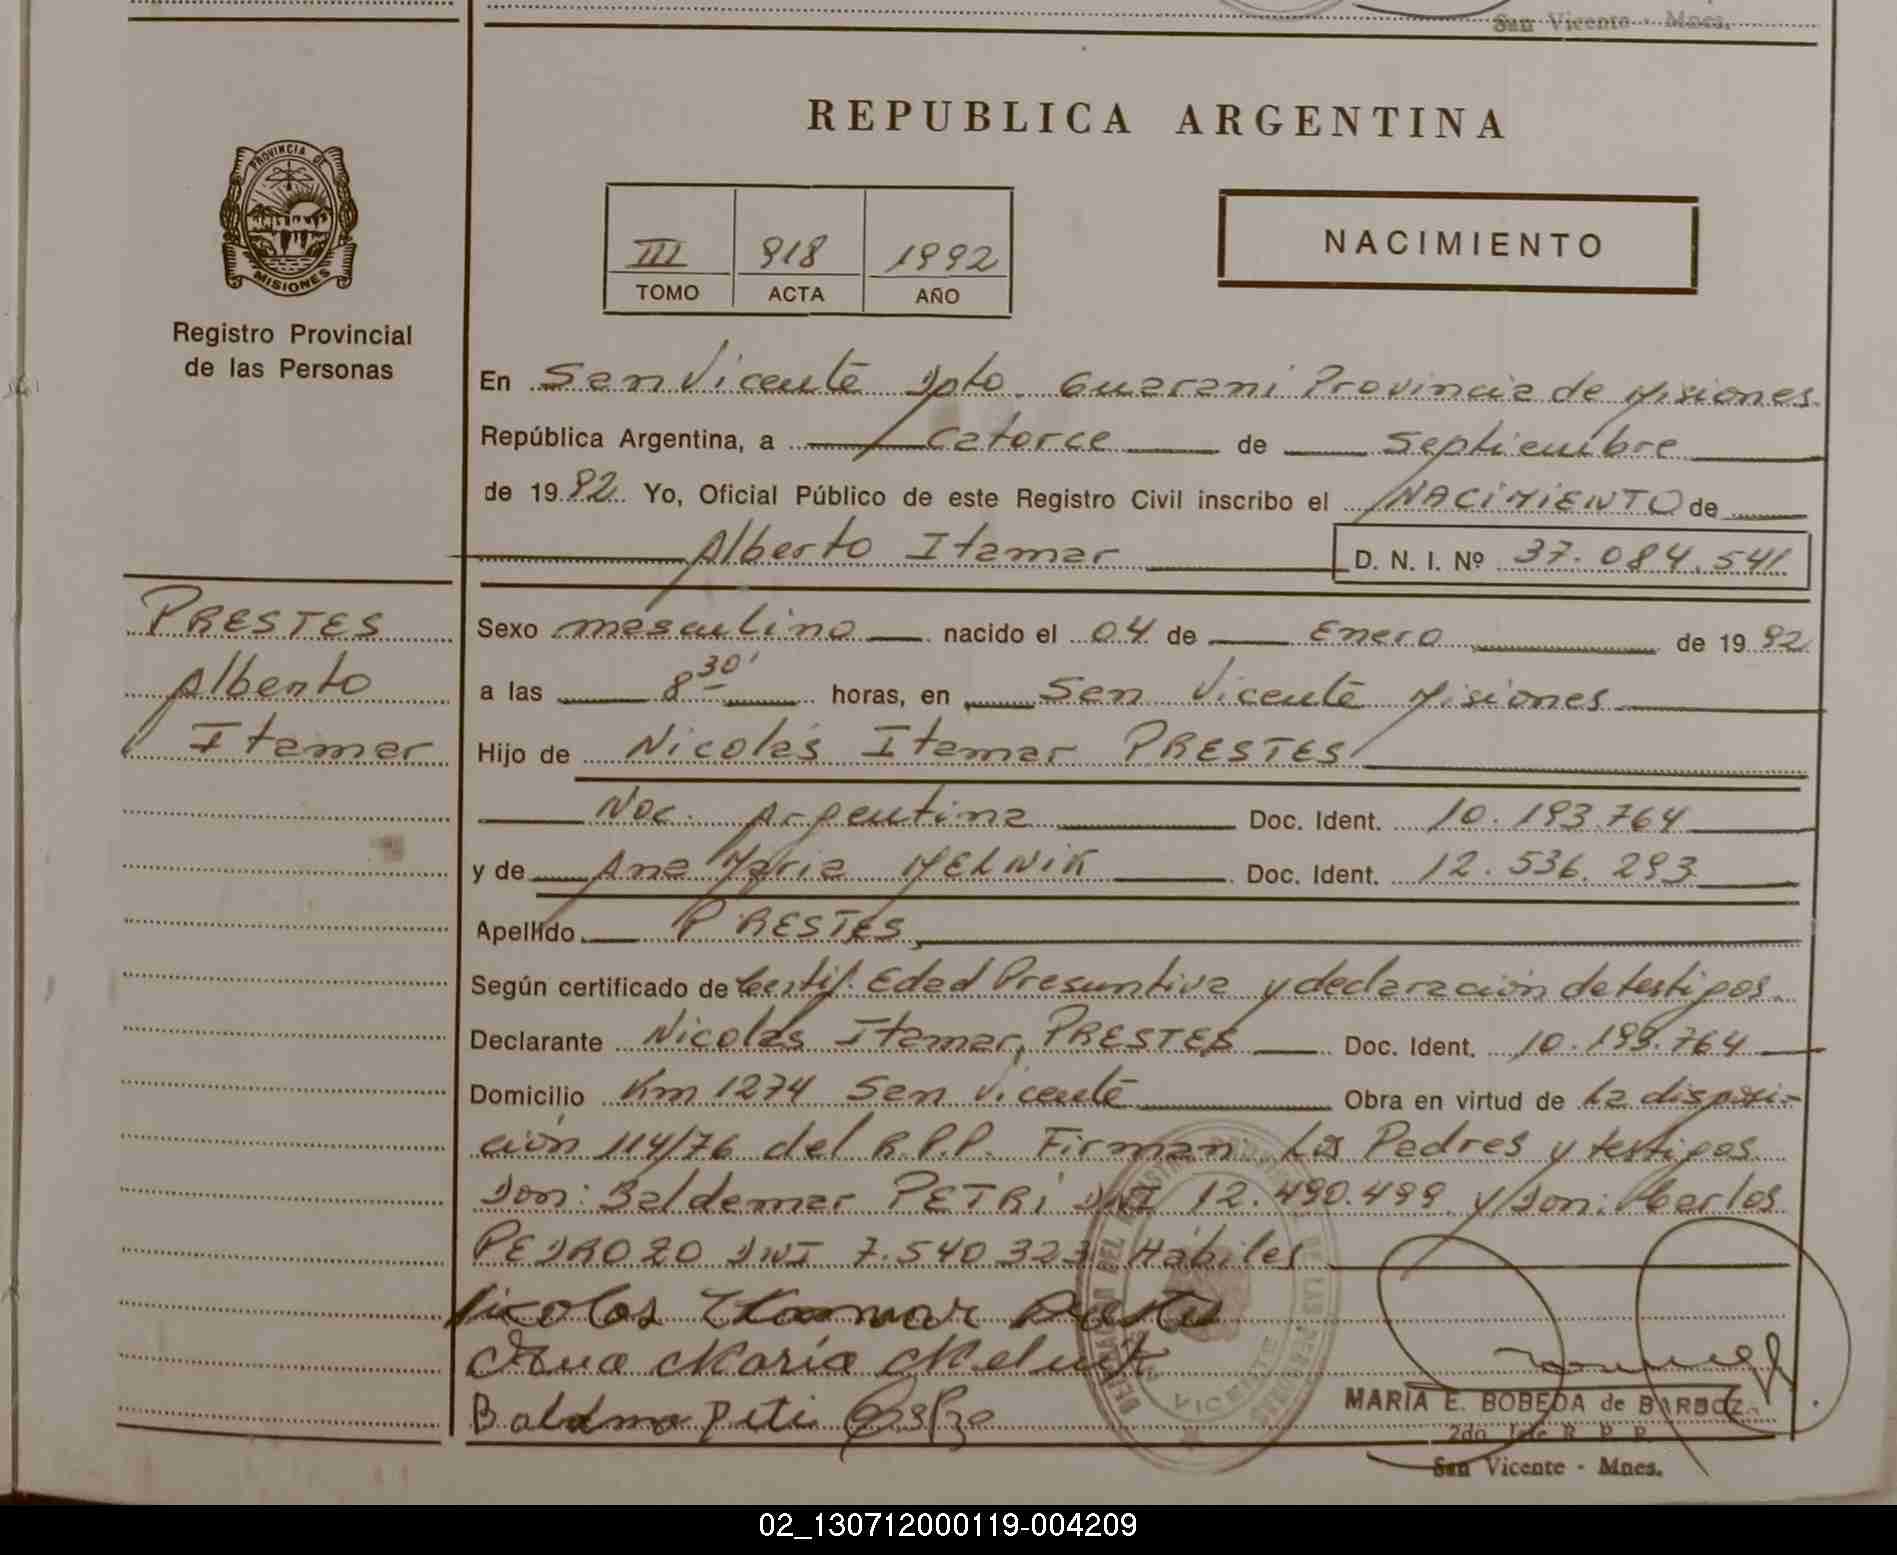 San Vicente - Mnes.
REPUBLICA ARGENTINA
PROVINCIA DE
MISIONES
Registro Provincial
de las Personas
III 918 1992
TOMO ACTA AÑO
NACIMIENTO
En San Vicente Dpto. Guarani Provincia de Misiones
República Argentina, a Catorce de Septiembre
de 1992 Yo, Oficial Público de este Registro Civil inscribo el NACIMIENTO de
Alberto Itamar D. N. I. Nº 37.084.541
PRESTES
Alberto
Itamar
Sexo masculino nacido el 04 de Enero de 1992
a las 8 30' horas, en San Vicente Misiones
Hijo de Nicolás Itamar PRESTES
Nac. Argentina Doc. Ident. 10.193.764
y de Ana Maria MELNIK Doc. Ident. 12.536.293
Apellido PRESTES
Según certificado de Certif. Edad Presuntiva y declaración de testigos.
Declarante Nicolás Itamar PRESTES Doc. Ident. 10.193.764
Domicilio Km 1274 San Vicente Obra en virtud de la disposi-
ción 114/76 del R.P.P. Firman: Los Padres y testigos
Don: Baldemar PETRI DNI 12.490.499 y Don: Carlos
PEDROZO DNI 7.540.323 Hábiles
Nicolas Itamar Prestes
Ana Maria Melnik
VICENTE
MARIA E. BOBEDA de BARBOZA
2do Jefe R. P. P.
San Vicente - Mnes.
02_130712000119-004209